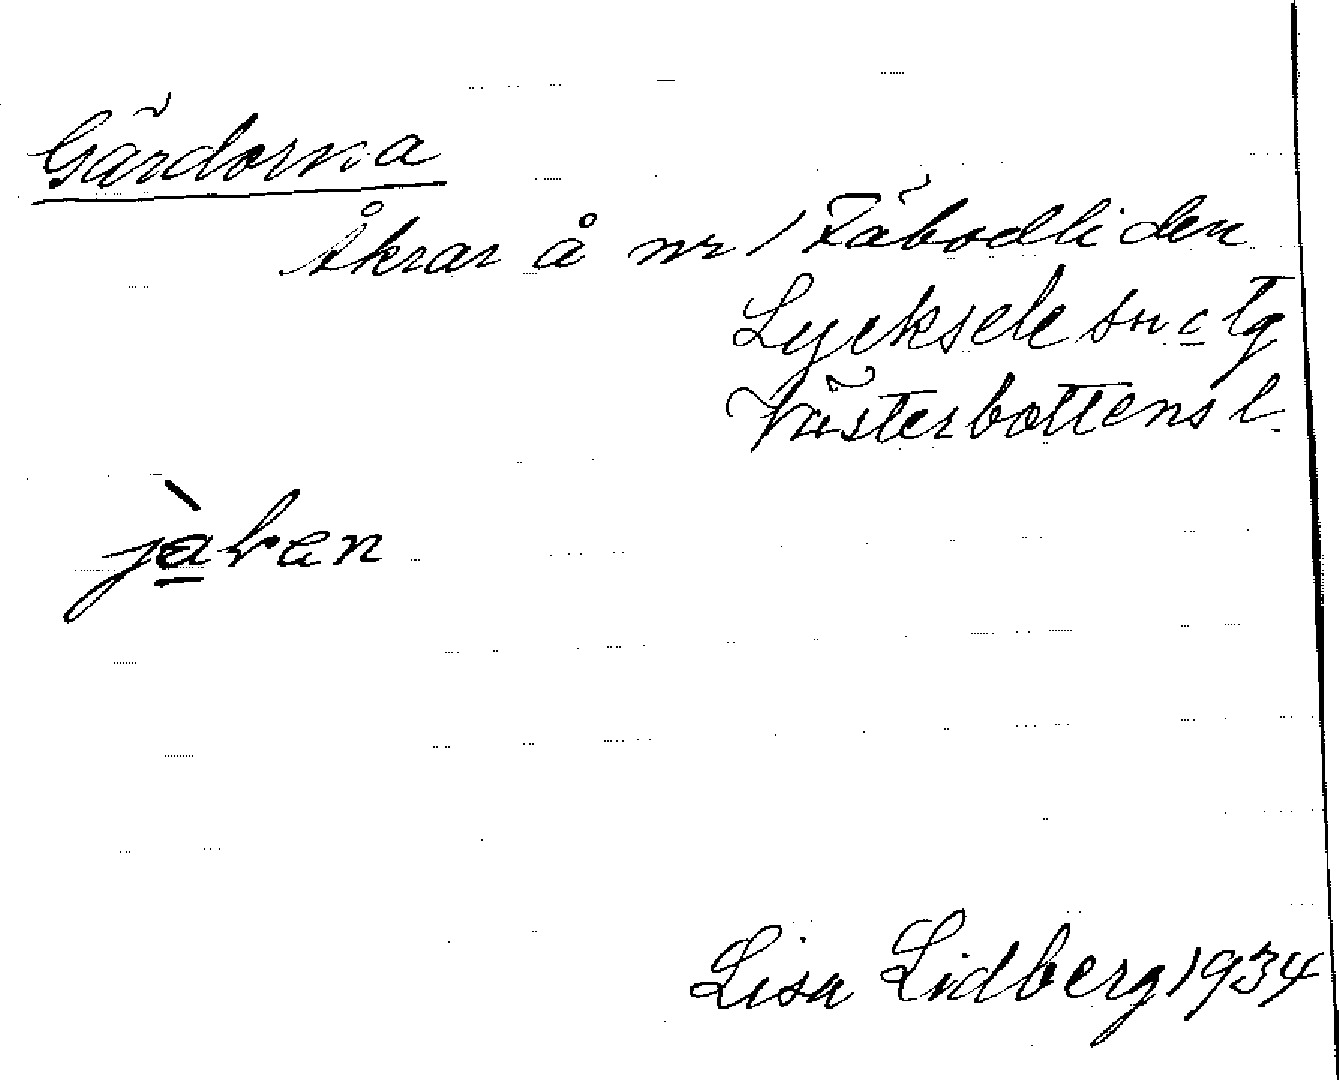 Gärdorna
Åkrar å nr 1 Fäbodliden
Lycksele sn o tg
Västerbottens l.
Lisa Lidberg 1934